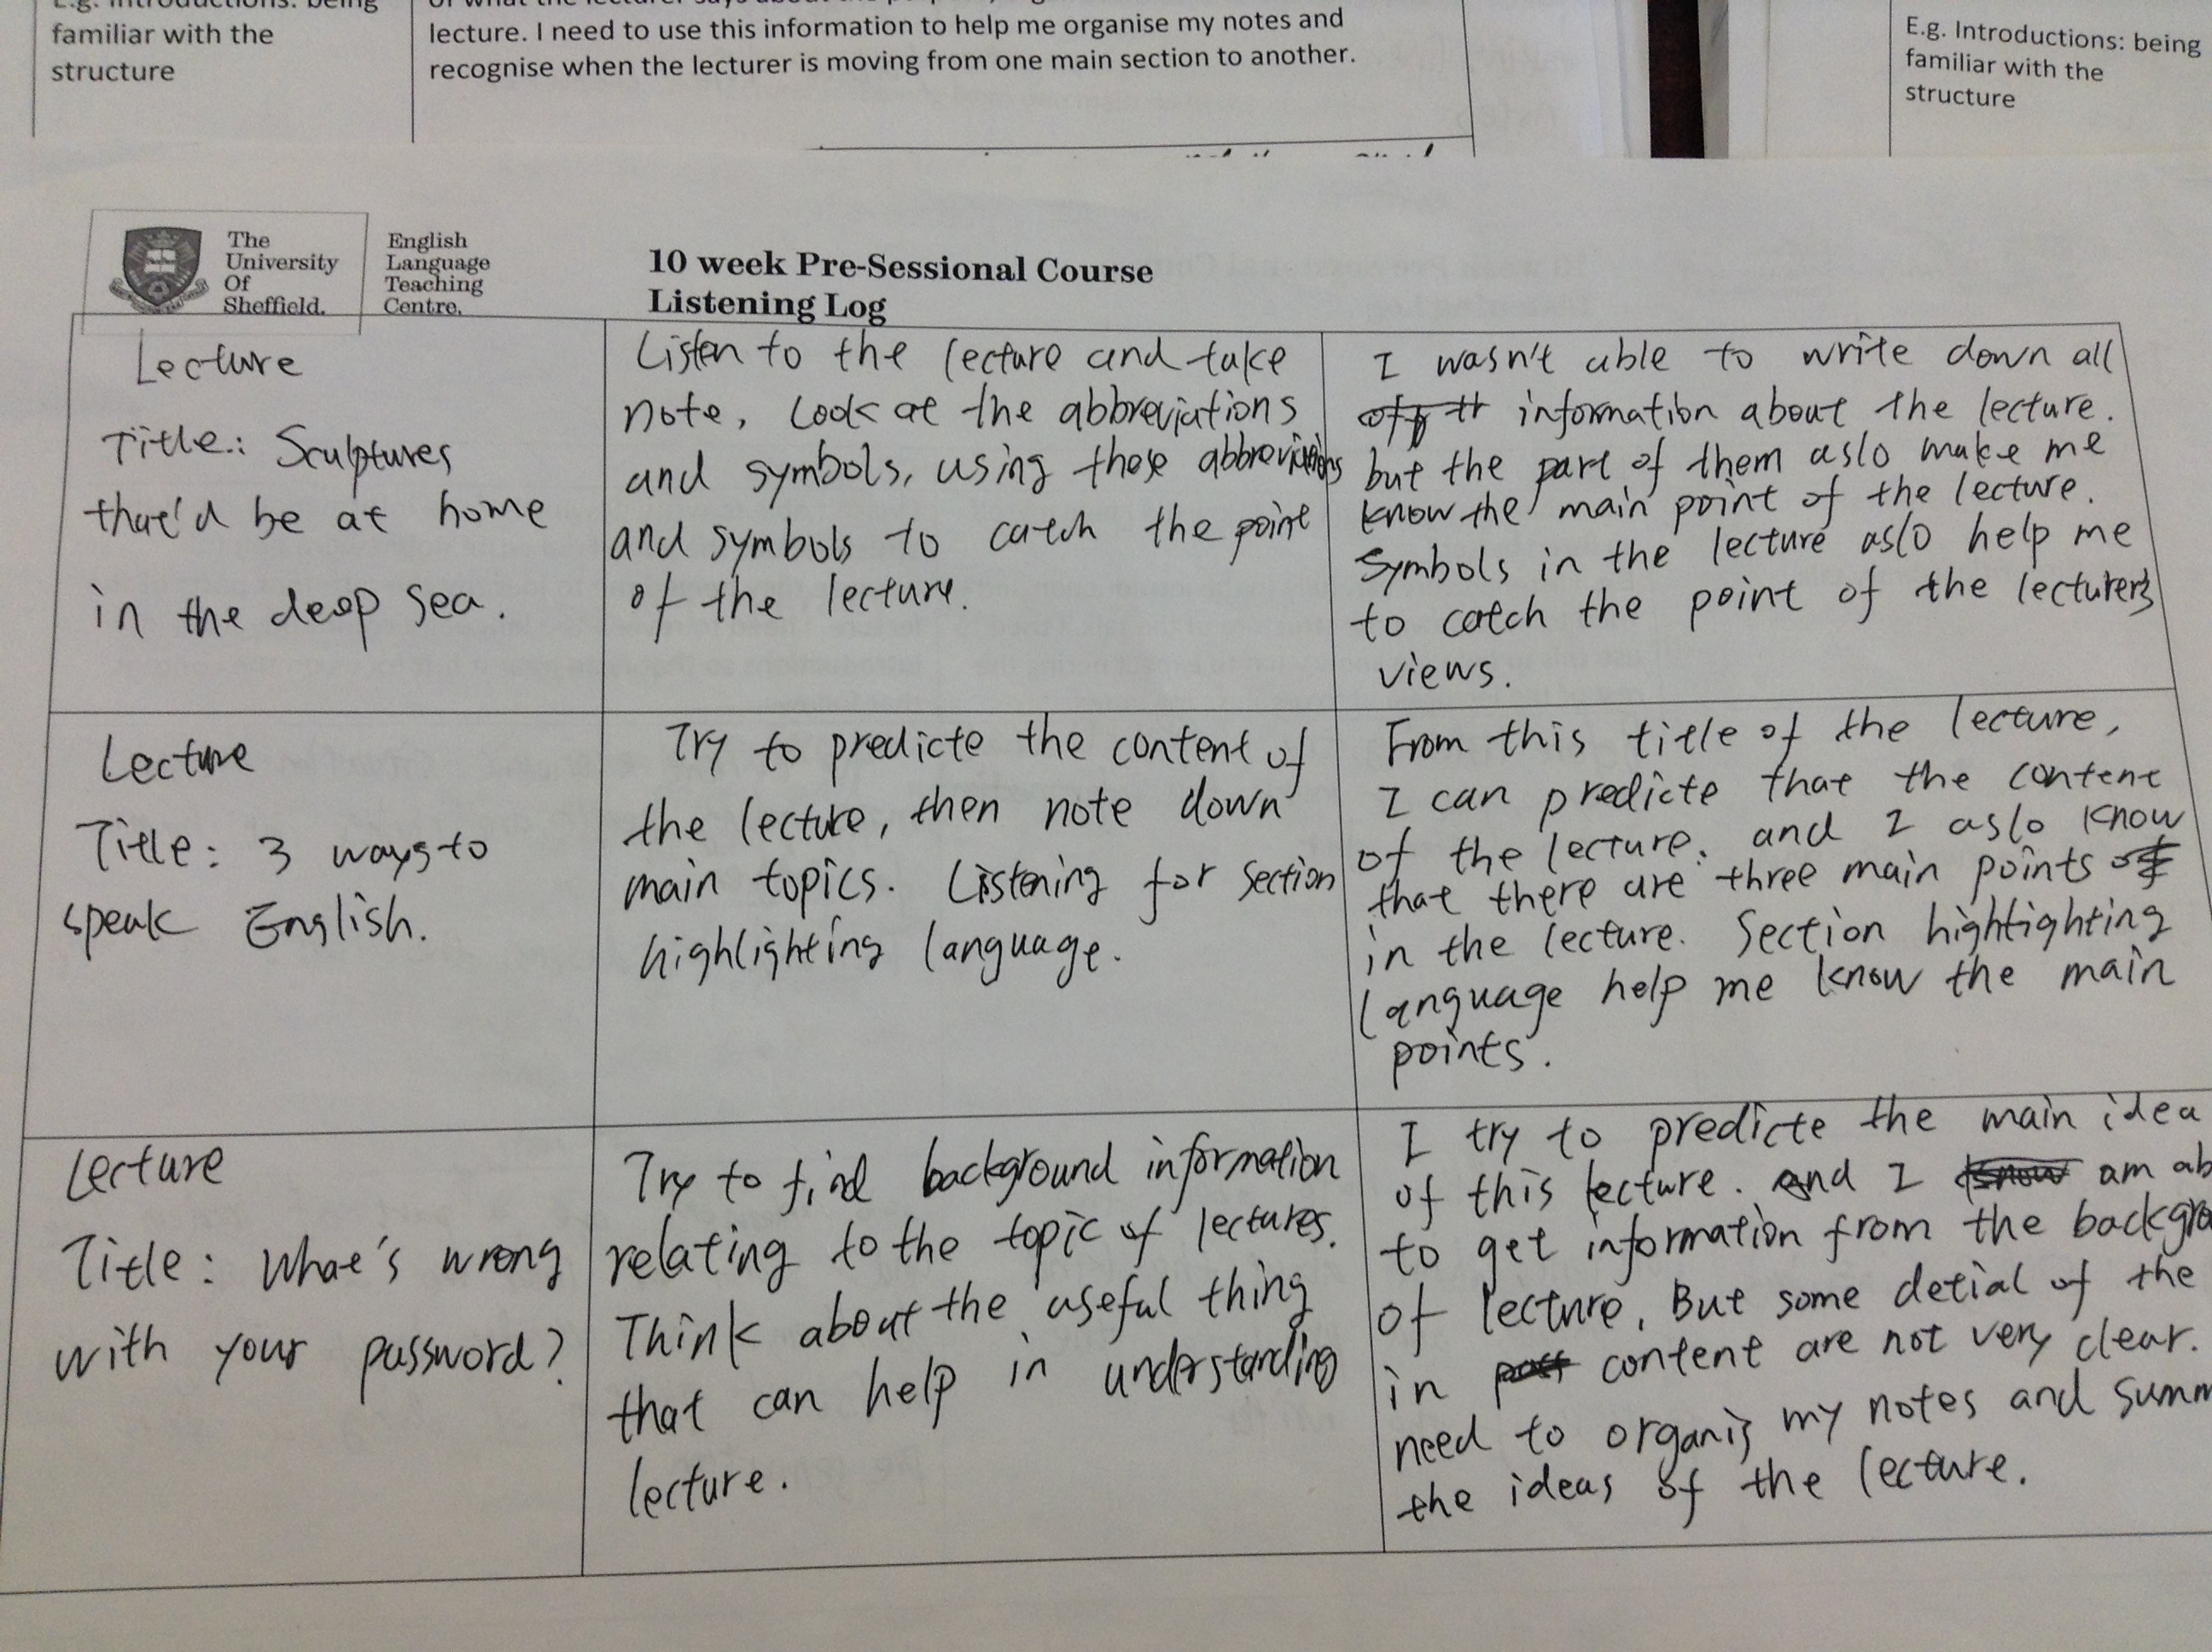 familiar with the
structure
lecture. I need to use this information to help me organise my notes and
recognise when the lecturer is moving from one main section to another.
E.g. Introductions: being
familiar with the
structure
The
University
Of
Sheffield.
English
Language
Teaching
Centre.
10 week Pre-Sessional Course
Listening Log
Lecture
Title: Sculptures
that'd be at home
in the deep sea.
Listen to the lecture and take
note. Look at the abbreviations
and symbols, using these abbreviations
and symbols to catch the point
of the lecture.
I wasn't able to write down all
information about the lecture.
but the part of them aslo make me
know the main point of the lecture.
Symbols in the lecture aslo help me
to catch the point of the lecturers
views.
Lecture
Title: 3 ways to
speak English.
Try to predicte the content of
the lecture, then note down
main topics. Listening for section
highlighting language.
From this title of the lecture,
I can predicte that the content
of the lecture. and I aslo know
that there are three main points of
in the lecture. Section hightighting
language help me know the main
points.
Lecture
Title: What's wrong
with your password?
Try to find background information
relating to the topic of lectures.
Think about the useful thing
that can help in understanding
lecture.
I try to predicte the main idea
of this lecture. And I know am ab
to get information from the backgro
of lecture. But some detial of the
in content are not very clear.
need to organis my notes and summ
the ideas of the lecture.